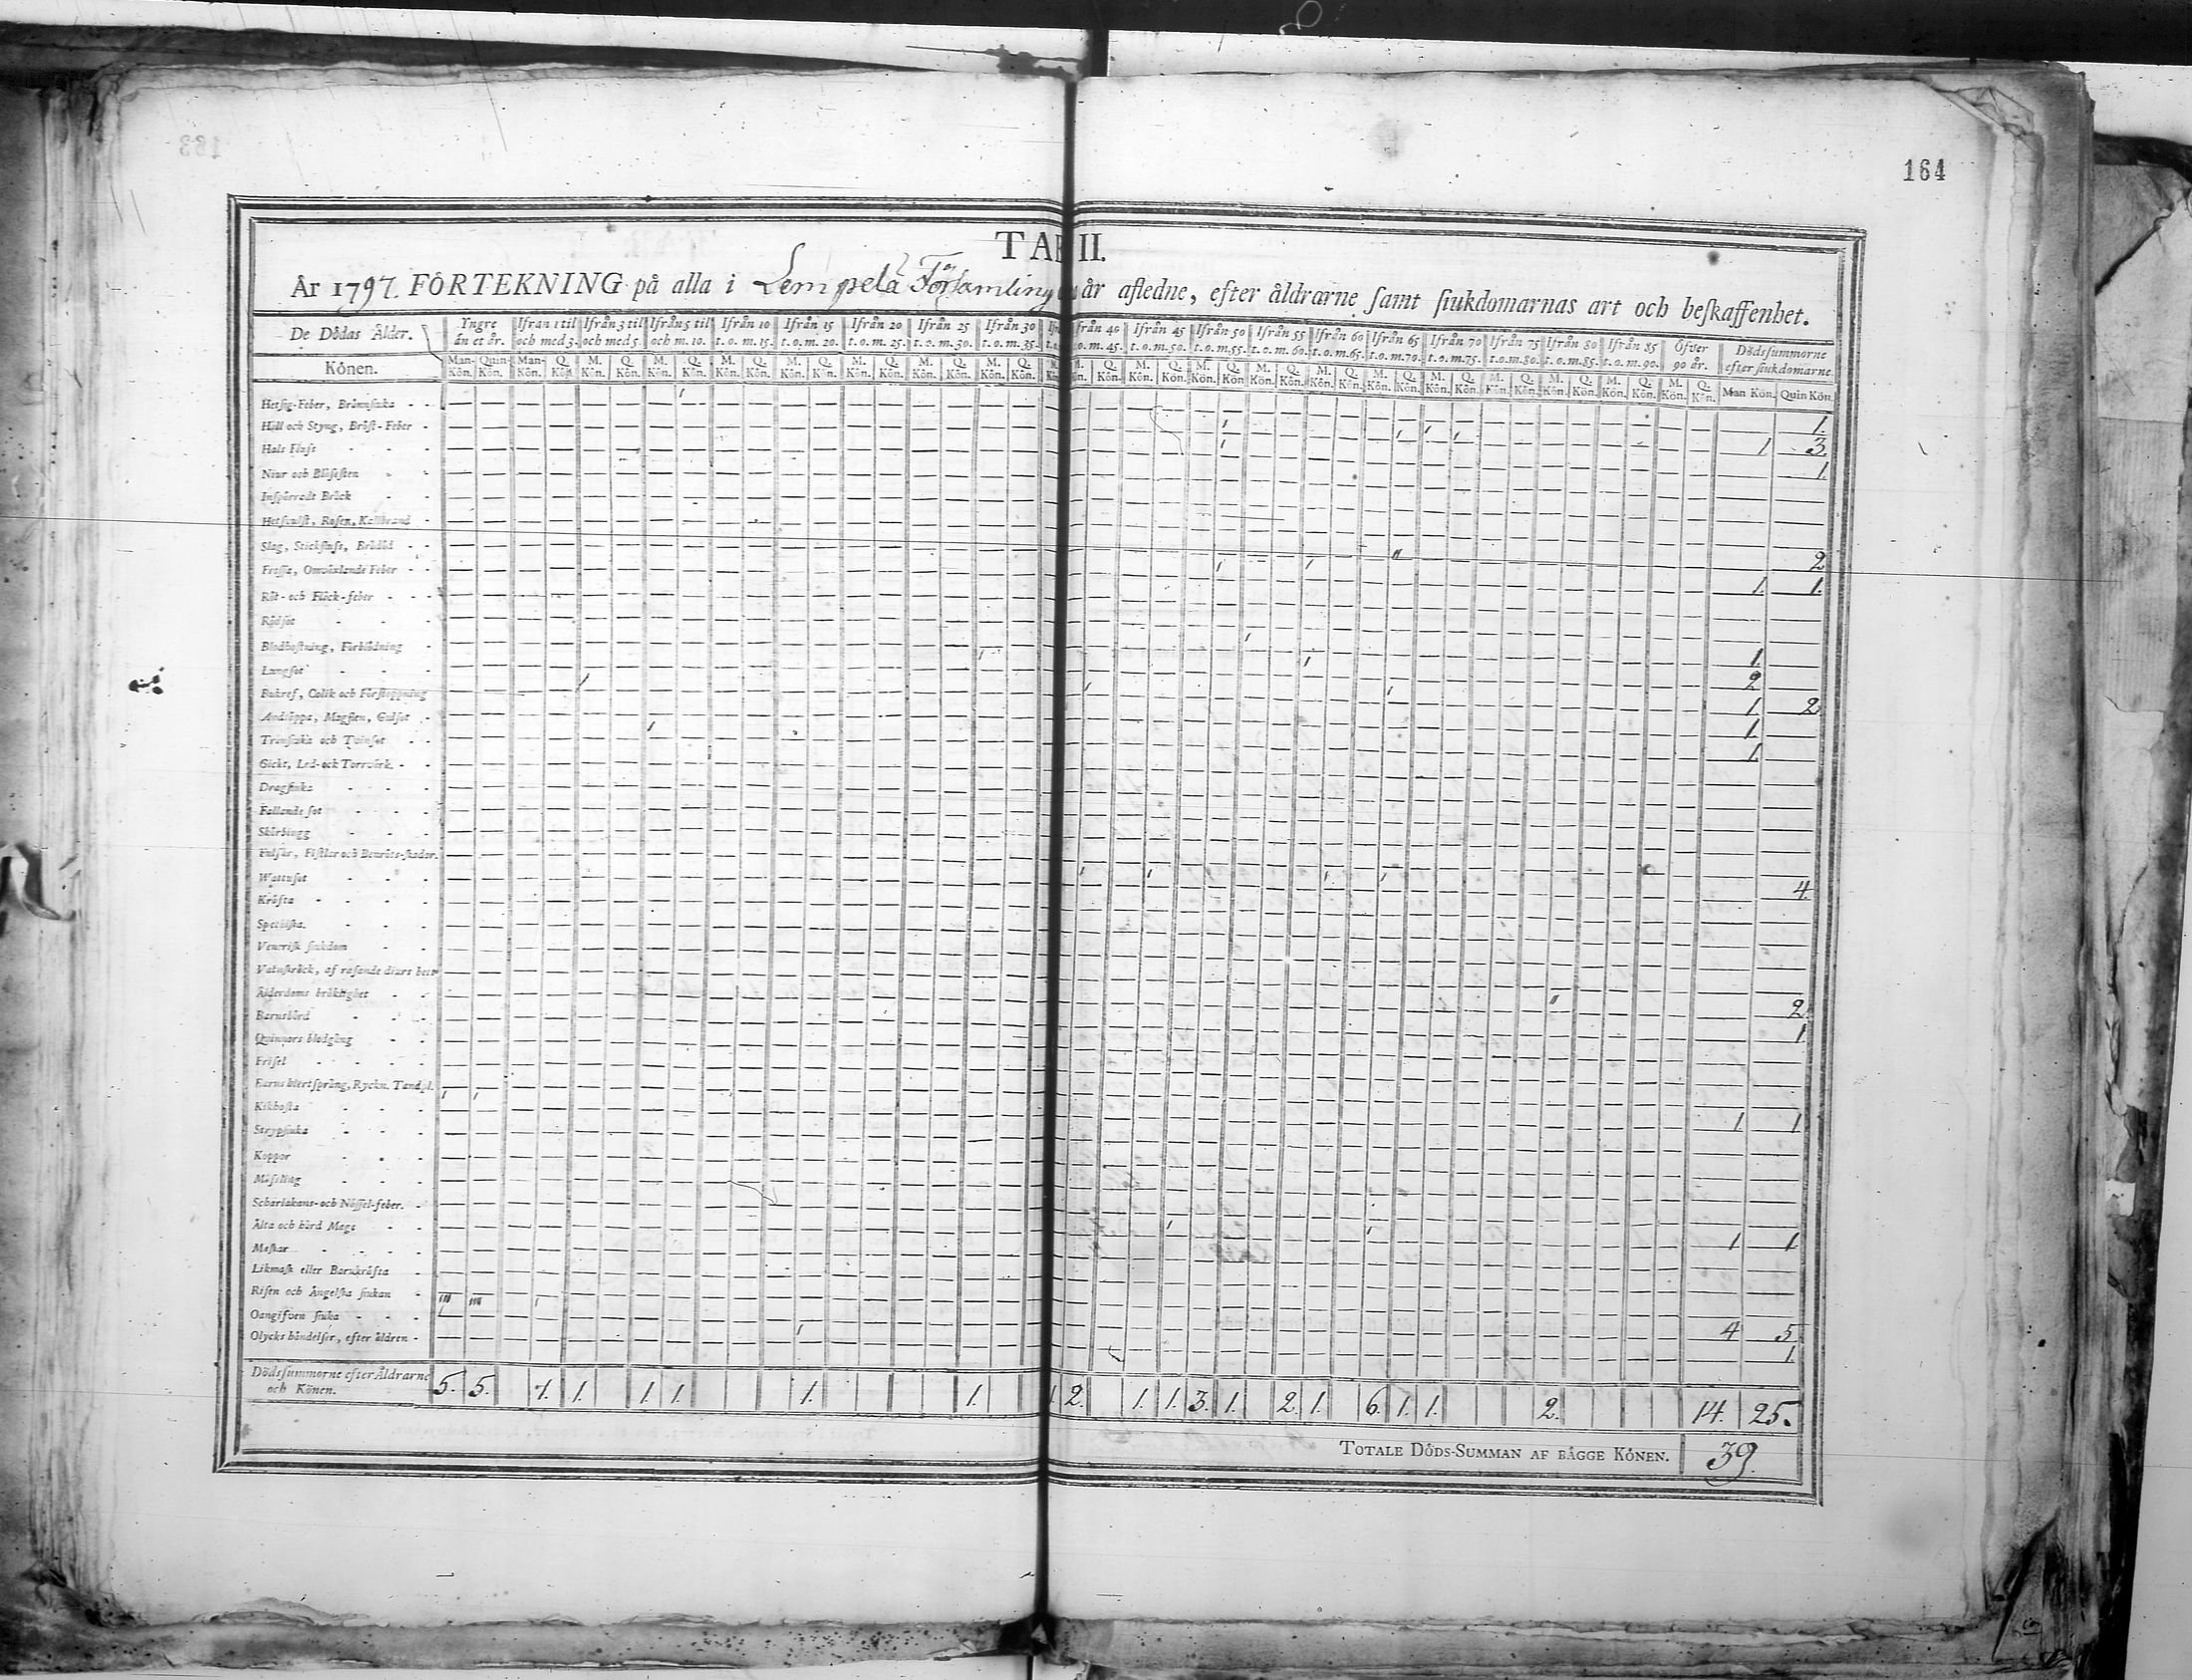 164
TAB II.
År 1797. FÖRTEKNING på alla i Lempela Församling år afledne, efter åldrarne samt siukdomarnas art och beskaffenhet.
De Dödas Ålder. Yngre än et år. Ifrån 1 til och med 3. Ifrån 3 til och med 5. Ifrån 5 til och m. 10. Ifrån 10 t. o. m. 15. Ifrån 15 t. o. m. 20. Ifrån 20 t. o. m. 25. Ifrån 25 t. o. m. 30. Ifrån 30 t. o. m. 35. Ifrån 40 t. o. m. 45. Ifrån 45 t. o. m. 50. Ifrån 50 t. o. m. 55. Ifrån 55 t. o. m. 60. Ifrån 60 t. o. m. 65. Ifrån 65 t. o. m. 70. Ifrån 70 t. o. m. 75. Ifrån 75 t. o. m. 80. Ifrån 80 t. o. m. 85. Ifrån 85 t. o. m. 90. Öfver 90 år. Dödssummorne efter siukdomarne
Könen. Man-Kön. Quin-Kön. Man-Kön. Q. Kön. M. Kön. Q. Kön. M. Kön. Q. Kön. M. Kön. Q. Kön. M. Kön. Q. Kön. M. Kön. Q. Kön. M. Kön. Q. Kön. M. Kön. Q. Kön. Q. Kön. M. Kön. Q. Kön. M. Kön. Q. Kön. M. Kön. Q. Kön. M. Kön. Q. Kön. M. Kön. Q. Kön. M. Kön. Q. Kön. M. Kön. Q. Kön. M. Kön. Q. Kön. M. Kön. Q. Kön. M. Kön. Q. Kön. Man Kön. Quin Kön.
Hetsig-Feber, Brännsiuka 1.
Håll och Styng, Bröst-Feber 1 3.
Hals Flusz 1.
Niur och Blåsesten
Inspärradt Bråck
Hetsvulst, Rosen, Kallbrand
Slag, Stickfluss, Brådöd 2
Frossa, Omväxlande Feber 1. 1.
Röt- och Fläck-feber
Rödsot
Blodhostning, Förblödning 1.
Lungsot 2
Bukref, Colik och Förstoppning 1. 2.
Andtäppa, Magsten, Gulsot 1.
Tränsiuka och Tvinsot 1.
Gickt, Led- och Torrvärk.
Dragsiuka
Fallande sot
Skörbiugg
Fulsår, Fistlar och Benröts-skador.
Wattusot 4.
Kräfta
Spetälska.
Venerisk siukdom
Vatuskräck, af rasande diurs bett
Ålderdoms bräklighet 2.
Barnsbörd 1
Quinnors blodgång
Frisel
Barns hiertsprång, Ryckn. Tandsl. 1 1
Kikhosta
Strypsiuka
Koppor
Mässling
Scharlakans- och Nässel-feber.
Älta och hård Mage 1 1
Maskar
Likmask eller Barnkräfta
Risen och Ängelska siukan
Oangifven siuka 4 5
Olycks händelser, efter åldren 1.
Dödssummorne efter Åldrarne och Könen. 5. 5. 1. 1. 1. 1. 1. 1. 1 2. 1. 1. 3. 1. 2. 1. 6. 1. 1. 2. 14. 25.
TOTALE DÖDS-SUMMAN AF BÄGGE KÖNEN. 39.